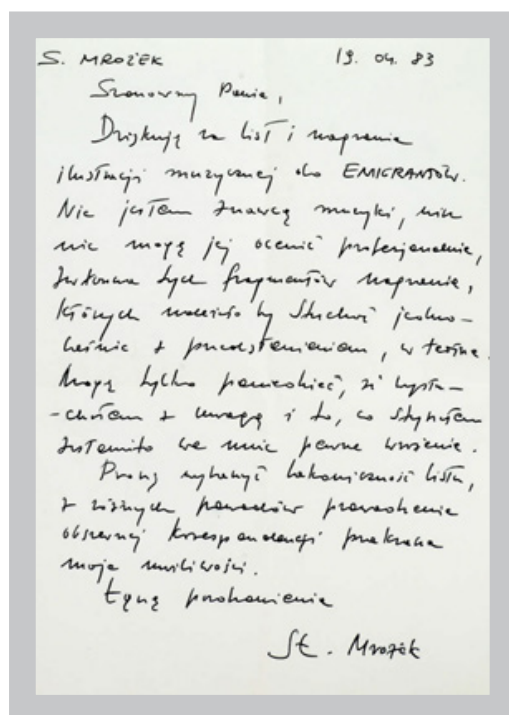 S. MROŻEK 19. 04. 83
Szanowny Panie,
Dziękuję za list i nagranie
ilustracji muzycznej do EMIGRANTÓW.
Nie jestem znawcą muzyki, więc
nie mogę jej ocenić profesjonalnie,
zwłaszcza tych fragmentów nagrania,
których należało by słuchać jedno-
cześnie z przedstawieniem, w teatrze.
Mogę tylko powiedzieć, że wysłu-
-chałem z uwagą i to, co słyszałem
zostawiło we mnie pewne wrażenie.
Proszę wybaczyć lakoniczność listu,
z różnych powodów prowadzenie
obszernej korespondencji przekracza
moje możliwości.
Łączę pozdrowienia
Sł. Mrożek